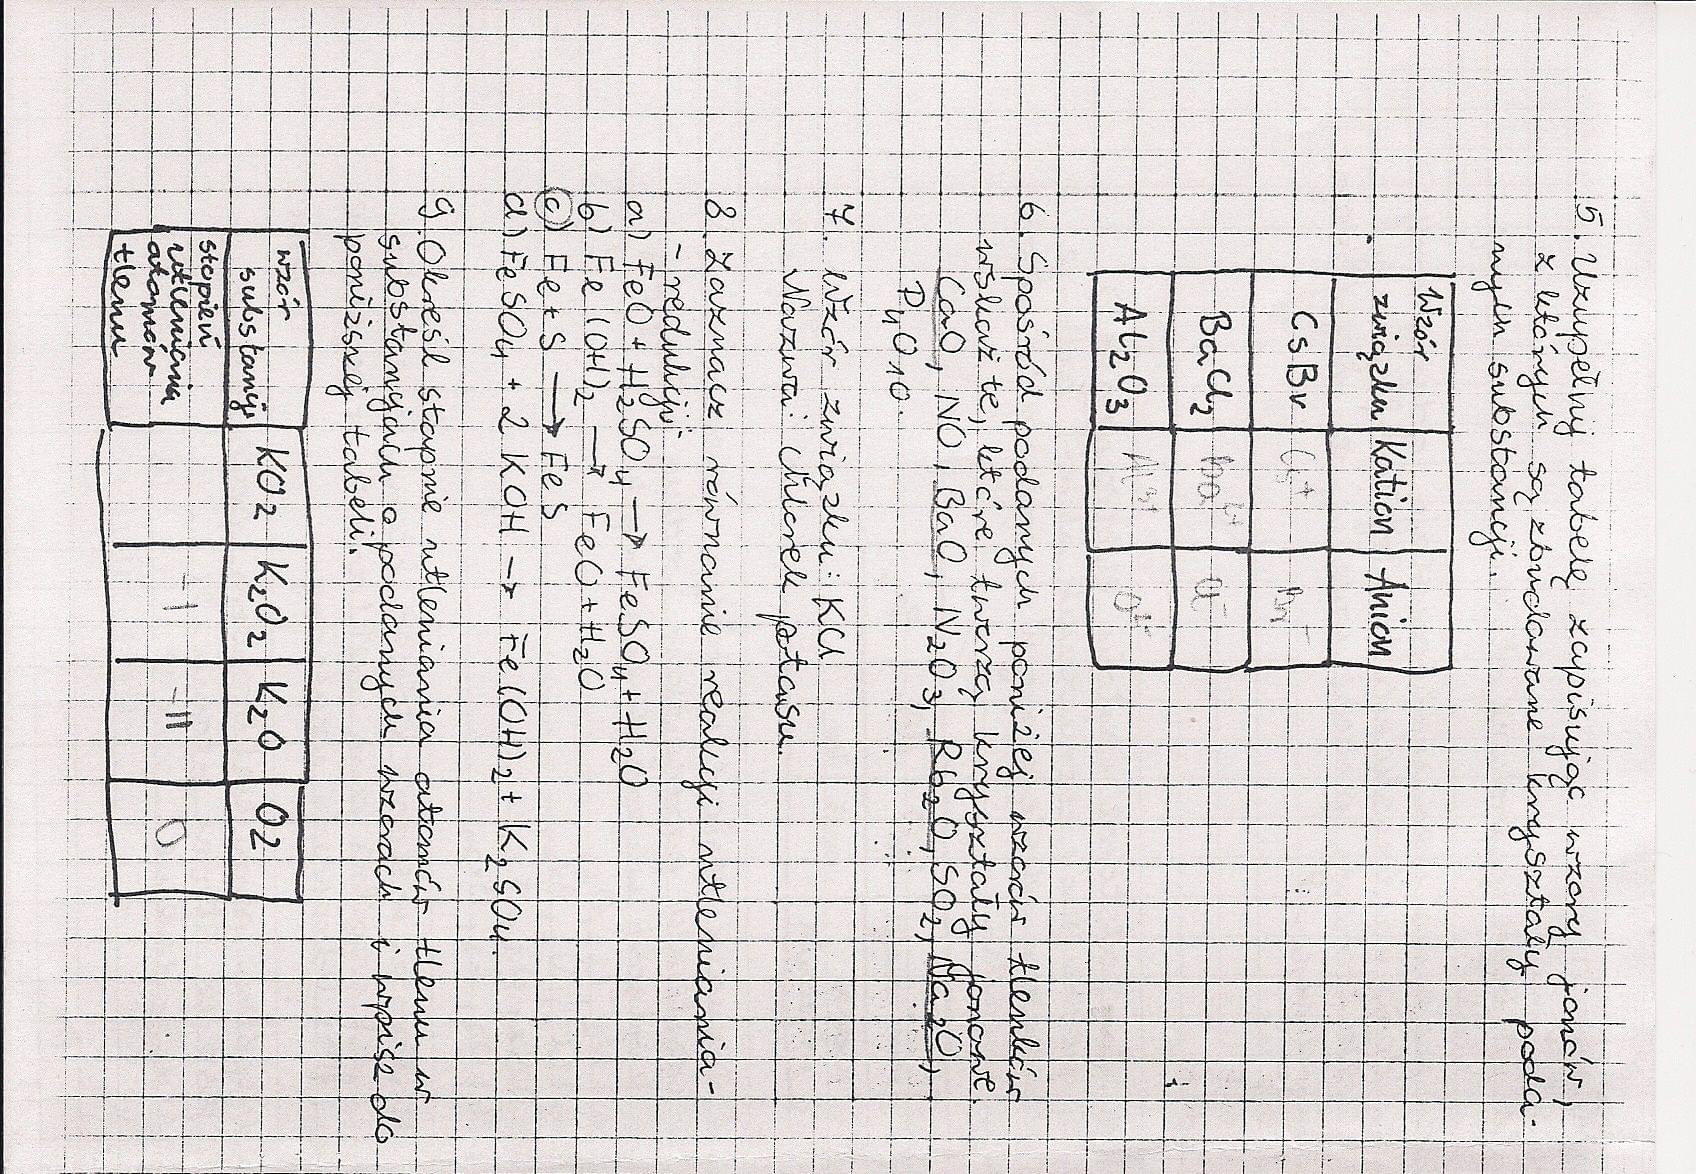 5. Uzupełnij tabelę zapisując wzory jonów,
z których są zbudowane kryształy poda-
nych substancji.
Wzór związku Kation Anion
CsBr Cs+ Br-
BaCl2 Ba2+ Cl-
Al2O3 Al3+ O2-
6. Spośród podanych poniżej wzorów tlenków
wskaż te, które tworzą kryształy jonowe.
CaO, NO, BaO, N2O3, Rb2O, SO2, Na2O,
P4O10.
7. Wzór związku: KCl
Nazwa: Chlorek potasu.
8. Zaznacz równanie reakcji utleniania-
-redukcji
a) FeO + H2SO4 → FeSO4 + H2O
b) Fe(OH)2 → FeO + H2O
c) Fe + S → FeS
d) FeSO4 + 2KOH → Fe(OH)2 + K2SO4.
9. Określ stopnie utleniania atomów tlenu w
substancjach o podanych wzorach i wpisz do
poniższej tabeli.
wzór substancji KO2 K2O2 K2O O2
stopień utleniania atomów tlenu -I -II 0